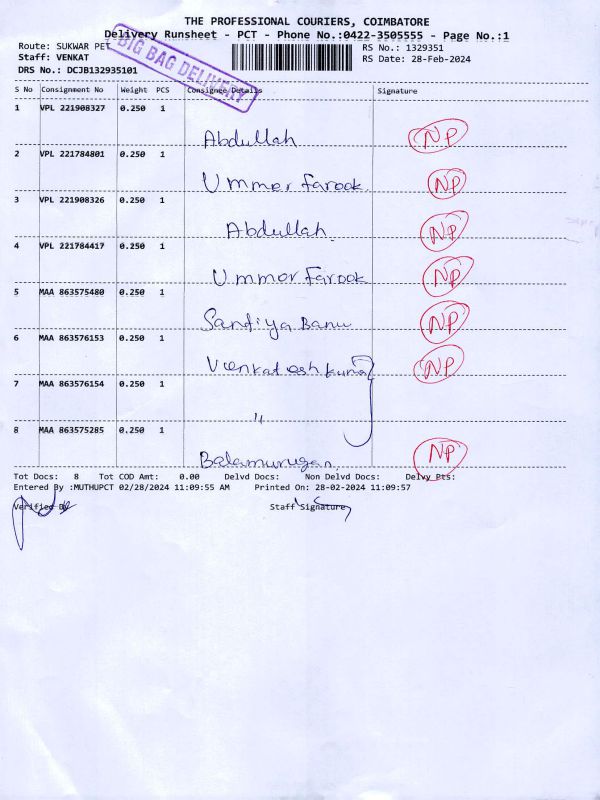 THE PROFESSIONAL COURIERS, COIMBATORE
Delivery Runsheet - PCT - Phone No.:0422-3505555 - Page No.:1
Route: SUKWAR PET
RS No.: 1329351
Staff: VENKAT
RS Date: 28-Feb-2024
DRS No.: DCJB132935101
BIG BAG DELIVERY
S No Consignment No Weight PCS Consignee Details Signature
1 VPL 221908327 0.250 1
Abdullah NP
2 VPL 221784801 0.250 1
Ummer farook NP
3 VPL 221908326 0.250 1
Abdullah NP
4 VPL 221784417 0.250 1
Ummer farook NP
5 MAA 863575480 0.250 1
Sanfiya Banu NP
6 MAA 863576153 0.250 1
Venkatesh kumar NP
7 MAA 863576154 0.250 1
"
8 MAA 863575285 0.250 1
Balamurugan NP
Tot Docs: 8 Tot COD Amt: 0.00 Delvd Docs: Non Delvd Docs: Delvy Pts:
Entered By :MUTHUPCT 02/28/2024 11:09:55 AM Printed On: 28-02-2024 11:09:57
Verified By Staff Signature